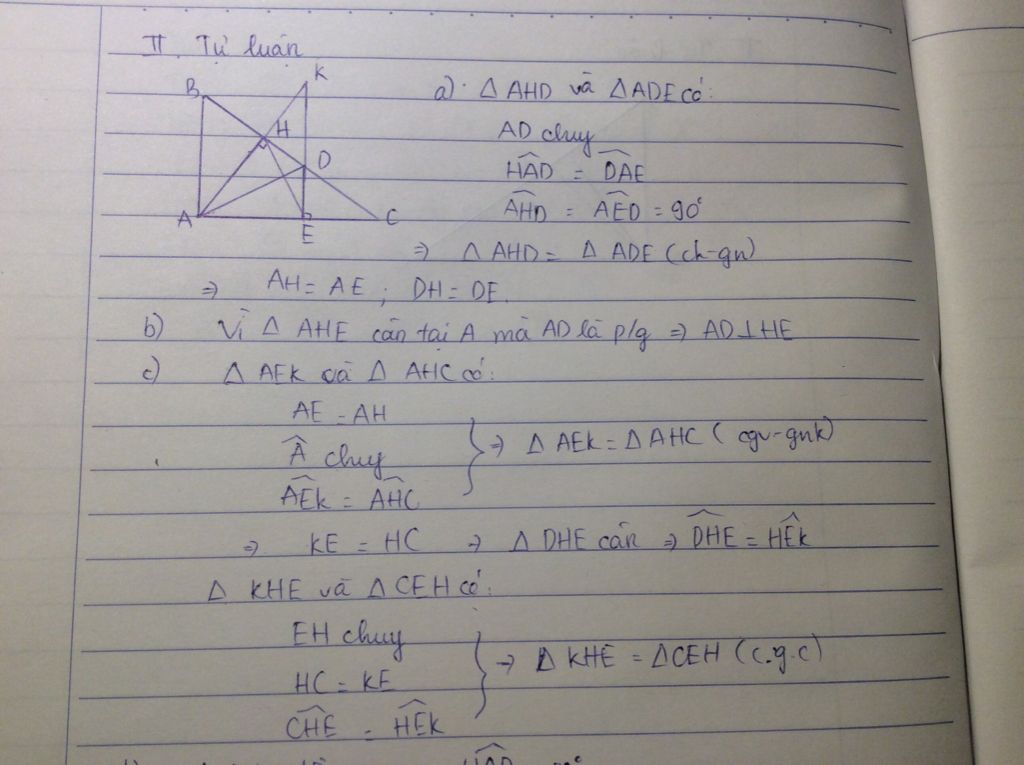 II. Tự luận
B
K
H
D
A
E
C
a) ΔAHD và ΔADE có:
AD chuy
HAD^ = DAE^
AHD^ = AED^ = 90°
⇒ ΔAHD = ΔADE (ch-gn)
⇒ AH = AE ; DH = DE.
b) Vì ΔAHE cân tại A mà AD là p/g ⇒ AD⊥HE
c) ΔAEK và ΔAHC có:
AE = AH
A^ chuy
AEK^ = AHC^
⇒ ΔAEK = ΔAHC (cgv-gnk)
⇒ KE = HC ⇒ ΔDHE cân ⇒ DHE^ = HEK^
ΔKHE và ΔCEH có:
EH chuy
HC = KE
CHE^ = HEK^
⇒ ΔKHE = ΔCEH (c.g.c)